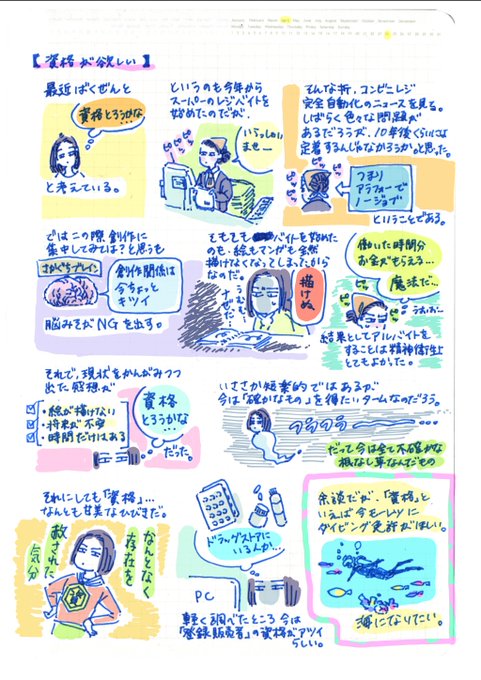 【資格が欲しい】
最近ばくぜんと
資格とろうかな
と考えている。
というのも今年から
スーパーのレジバイトを
始めたのだが、
いらっしゃい
ませー
ピッ
ピッ
ピッ
そんな折、コンビニレジ
完全自動化のニュースを見る。
しばらく色々な問題が
あるだろうが、10年後くらいには
定着するんじゃなかろうか。と思った。
つまり
アラフォーで
ノージョブ
ということである。
ではこの際創作に
集中してみては?と思うも
さかぐちブレイン
創作関係は
今ちょっと
キツイ
脳みそがNGを出す。
そもそもバイトを始めた
のも、絵もマンガも全然
描けなくなってしまったから
なのだ。
描けぬ
なぜだ
働いた時間分
お金がもらえる…
魔法だ…
うおおー
結果としてアルバイトを
することは精神衛生上
とてもよかった。
それで、現状をかんがみつつ
出た感想が
・絵が描けない
・将来が不安
・時間だけはある
資格
とろうかな…
だった。
いささか短楽的ではあるが
今は「確かなもの」を得たいタームなのだろう。
フラフラ
だって今は全て不確かな
根なし草なんだもの
それにしても「資格」…
なんとも甘美なひびきだ。
なんとなく
存在を
赦された
気分
資
ドラッグストアに
いる人か…
PC
軽く調べたところ今は
「登録販売者」の資格がアツイ
らしい。
余談だが、「資格」と
いえば今モーレツに
ダイビング免許がほしい。
海になりたい。